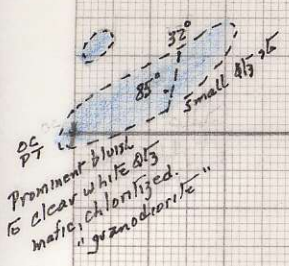 32°
85°
small qtz st
OC
PT
Prominent bluish
to clear white qtz
mafic, chloritized.
"granodiorite"